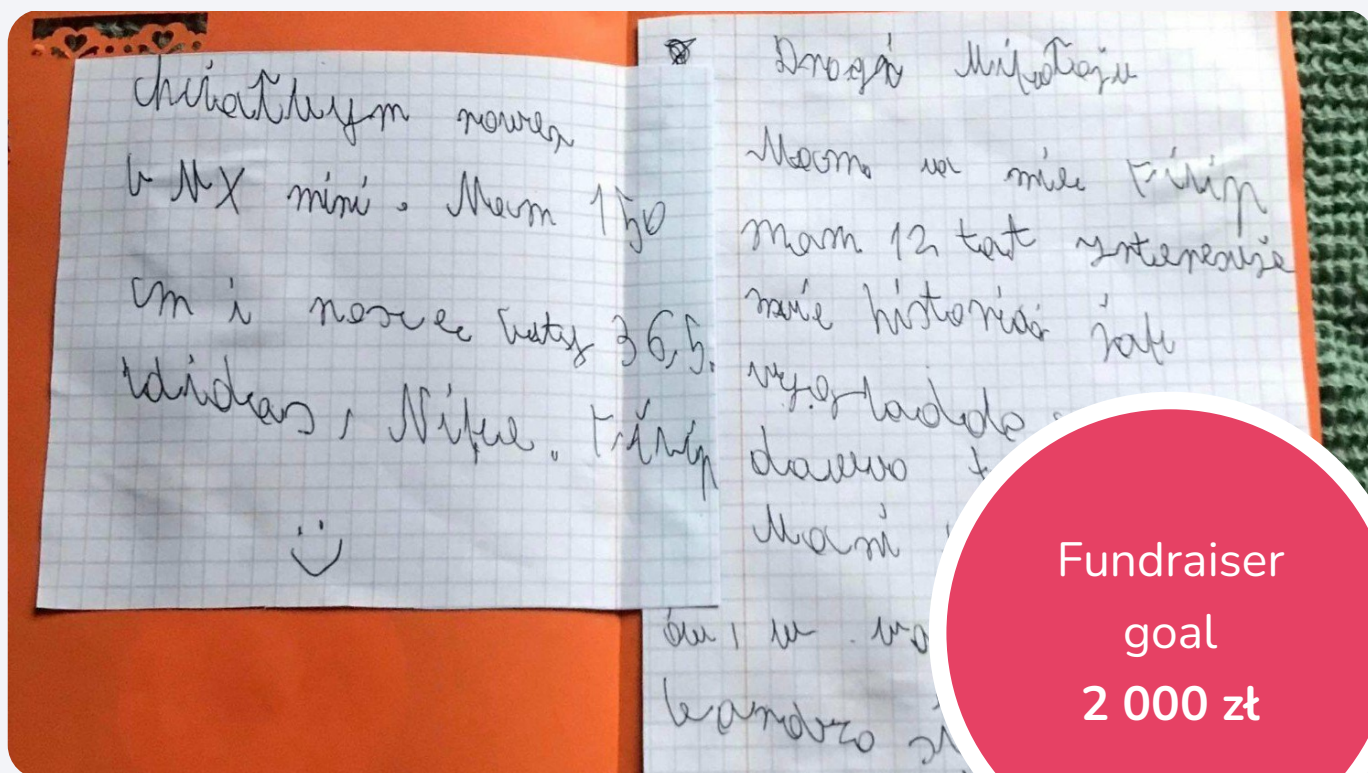 chciałbym rower
bMX mini. Mam 150
cm i noszę buty 36,5.
adidas, Nike. Filip
Drogi Mikołaju
Mam na imię Filip
mam 12 lat interesuje
mnie historia jak
wyglądało
dawno
bardzo
Fundraiser
goal
2 000 zł